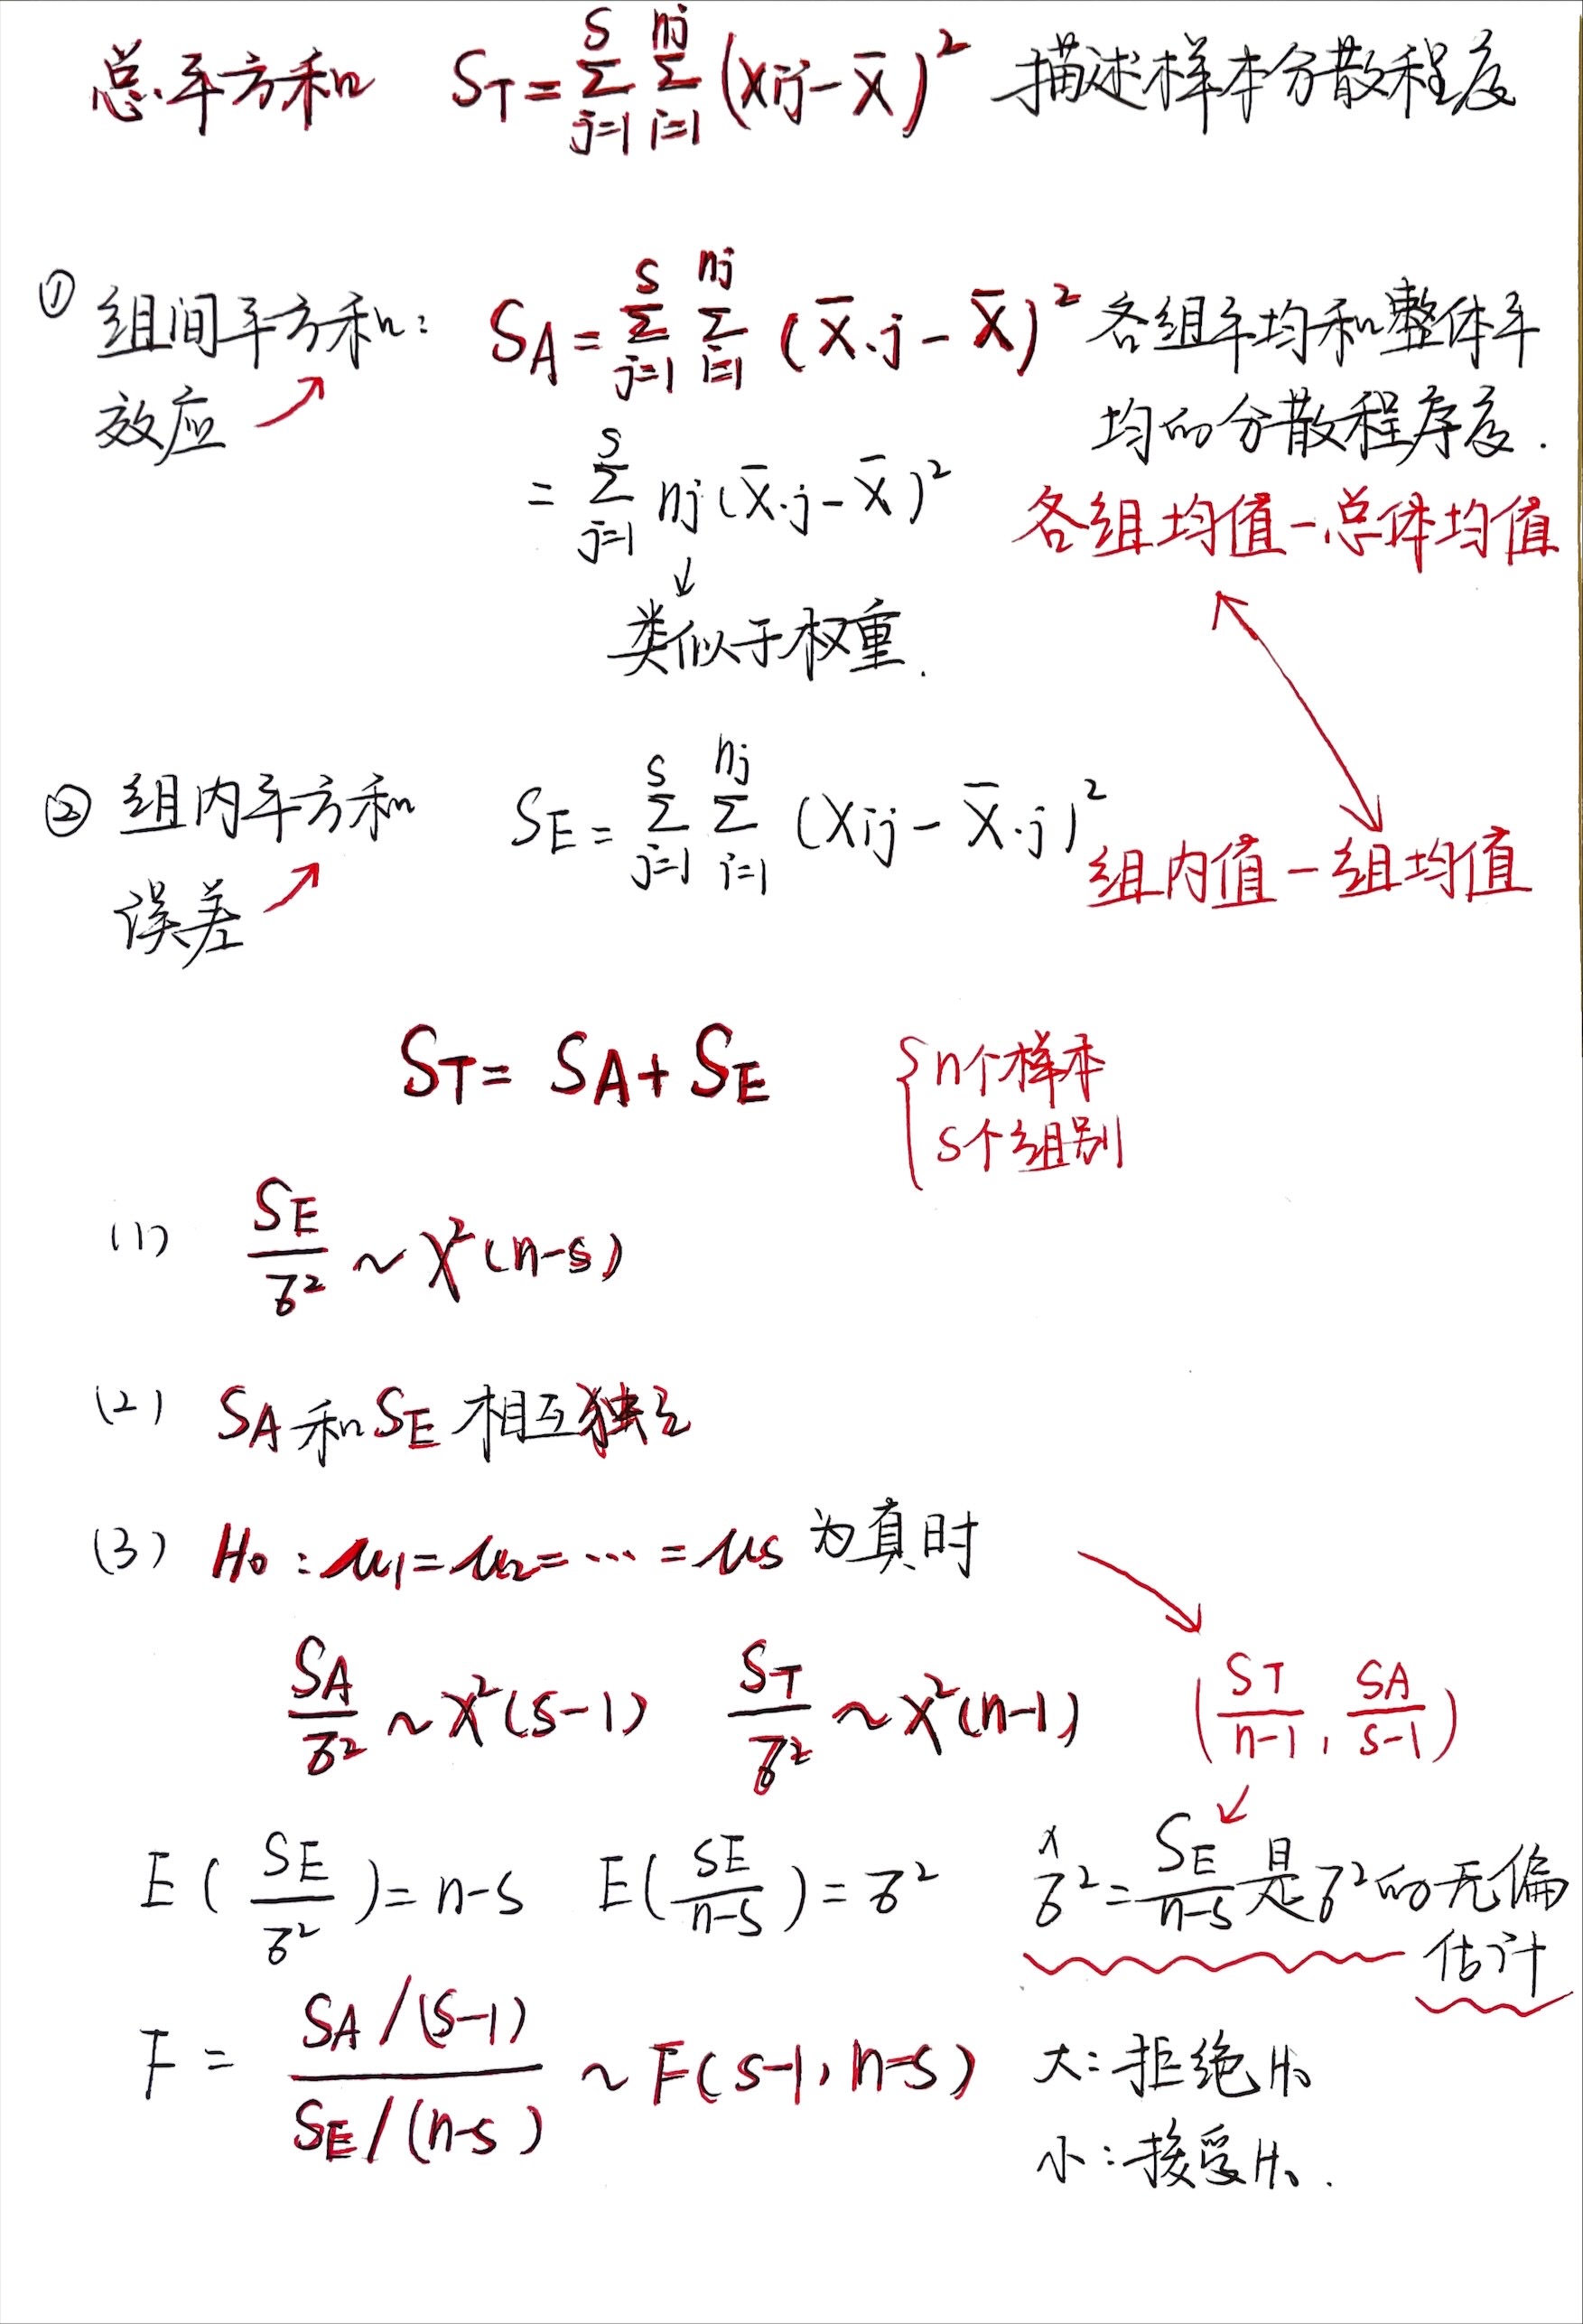 总平方和 S_T = Σ_{j=1}^{s} Σ_{i=1}^{nj} (Xij − X̄)² 描述样本分散程度
① 组间平方和: S_A = Σ_{j=1}^{s} Σ_{i=1}^{nj} (X̄.j − X̄)² 各组平均和整体平
效应 ↗ 均的分散程序度.
= Σ_{j=1}^{s} nj (X̄.j − X̄)² 各组均值−总体均值
↓
类似于权重.
② 组内平方和 S_E = Σ_{j=1}^{s} Σ_{i=1}^{nj} (Xij − X̄.j)²
组内值−组均值
误差 ↗
S_T = S_A + S_E
{ n个样本
s个组别
(1) S_E/σ² ~ χ²(n−s)
(2) S_A 和 S_E 相互独立
(3) H₀: μ₁ = μ₂ = … = μs 为真时
S_A/σ² ~ χ²(s−1) S_T/σ² ~ χ²(n−1) (S_T/(n−1), S_A/(s−1))
E(S_E/σ²) = n−s E(S_E/(n−s)) = σ² σ̂² = S_E/(n−s) 是σ²的无偏
估计
F = (S_A/(s−1))/(S_E/(n−s)) ~ F(s−1, n−s) 大: 拒绝H₀
小: 接受H₀.